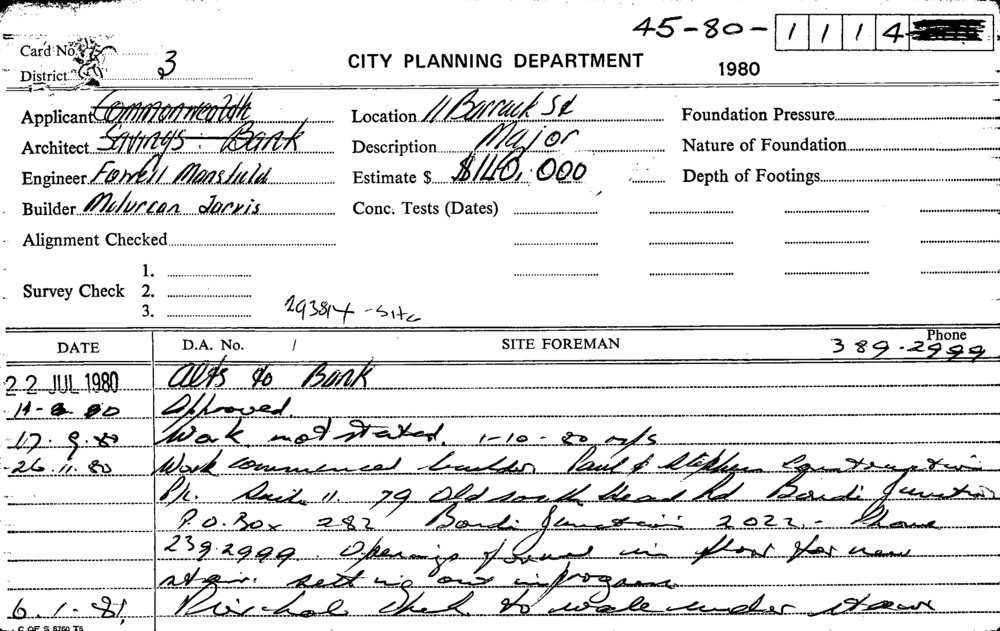 45-80- 1 1 1 4
Card No.
District 3
CITY PLANNING DEPARTMENT
1980
Applicant Commonwealth
Architect Savings Bank
Engineer Farrell Mansfield
Builder Melvrcan Jarvis
Alignment Checked
Survey Check 1.
2.
3.
Location 11 Barrack St
Description Major
Estimate $ $140,000
Conc. Tests (Dates)
Foundation Pressure
Nature of Foundation
Depth of Footings
293814 - Site
DATE D.A. No. / SITE FOREMAN Phone 389-2999
22 JUL 1980 Alts to Bank
80 Approved
17.9.80 Work not started. 1-10-80 n/s
26.11.80 Work commenced builder Paul & Stephen Construction
P/L. Suite 11. 79 Old South Head Rd Bondi Junction
P.O. Box 282 Bondi Junction 2022 - Phone
239.2999. Openings formed in floor for new
stair. setting out in progress
6.1.81. Pier hole check to wale under stairs
C OF S 5760 T6